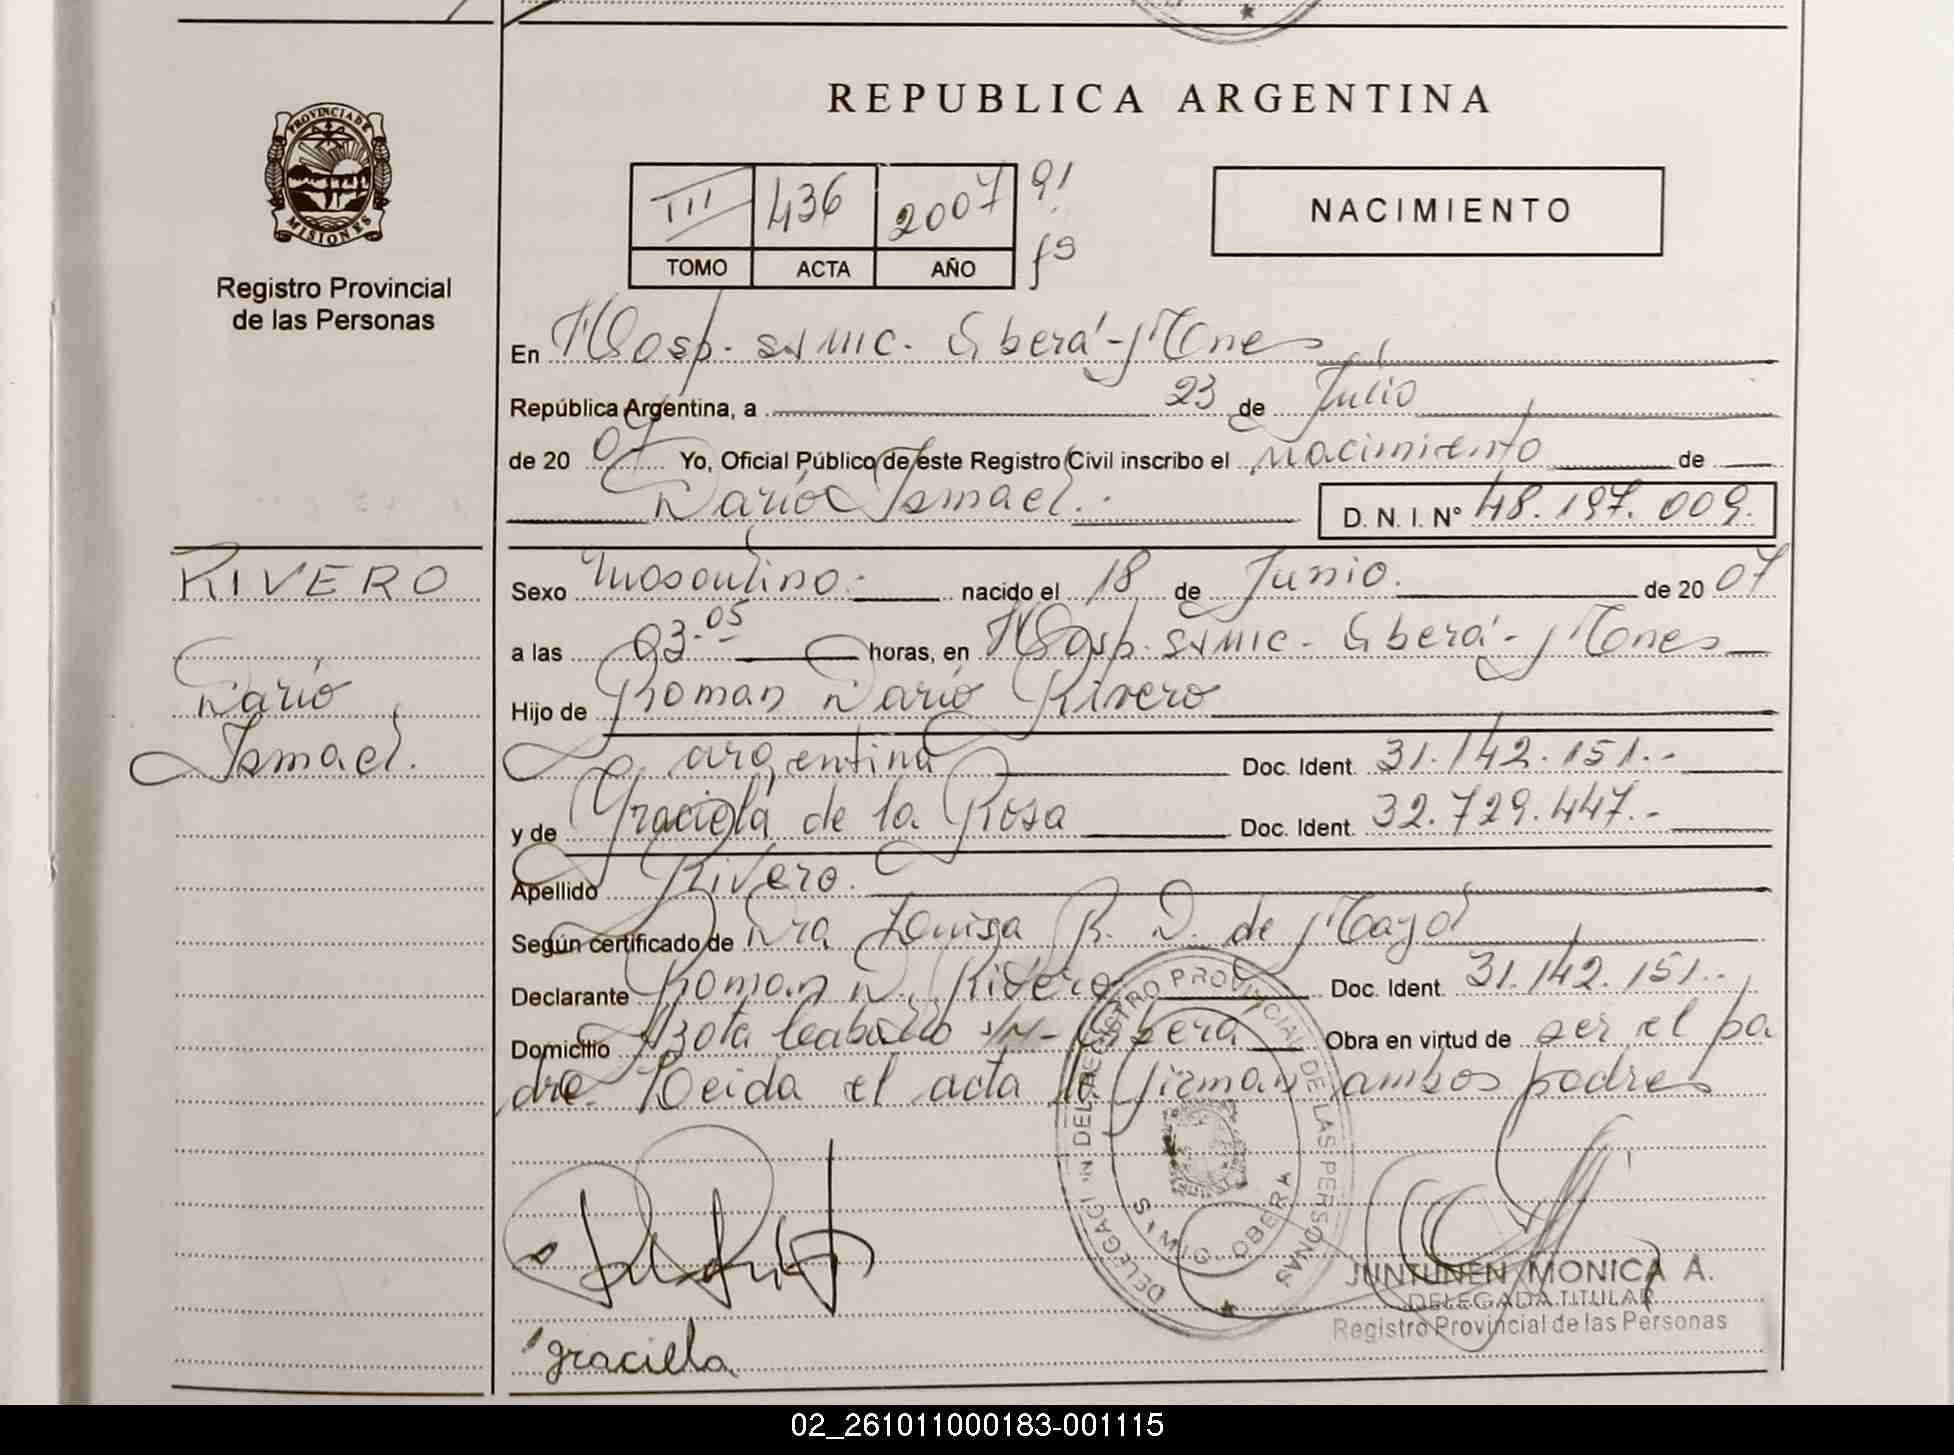 PROVINCIA DE
MISIONES
Registro Provincial
de las Personas
REPUBLICA ARGENTINA
III 436 2007 91
TOMO ACTA AÑO fs
NACIMIENTO
En Hosp. SAMIC. Oberá - Mones
República Argentina, a 23 de Julio
de 20 07 Yo, Oficial Público de este Registro Civil inscribo el Nacimiento de
Darío Ismael. D. N. I. N° 48.197.009.
RIVERO
Darío
Ismael.
Sexo Masculino. nacido el 18 de Junio. de 20 07
a las 03.05 horas, en Hosp. SAMIC - Oberá - Mones
Hijo de Roman Darío Rivero
argentina Doc. Ident. 31.142.151.-
y de Graciela de la Rosa Doc. Ident. 32.729.447.-
Apellido Rivero.
Según certificado de Dra Louisa R. D. de Mayol
Declarante Roman D. Rivero Doc. Ident. 31.142.151.-
Domicilio S/N - Oberá Obra en virtud de ser el pa
dre. Leida el acta la firman ambos padres
DELEGACION DEL REGISTRO PROVINCIAL DE LAS PERSONAS
OBERA
JUNTUNEN MONICA A.
DELEGADA TITULAR
Registro Provincial de las Personas
graciela
02_261011000183-001115